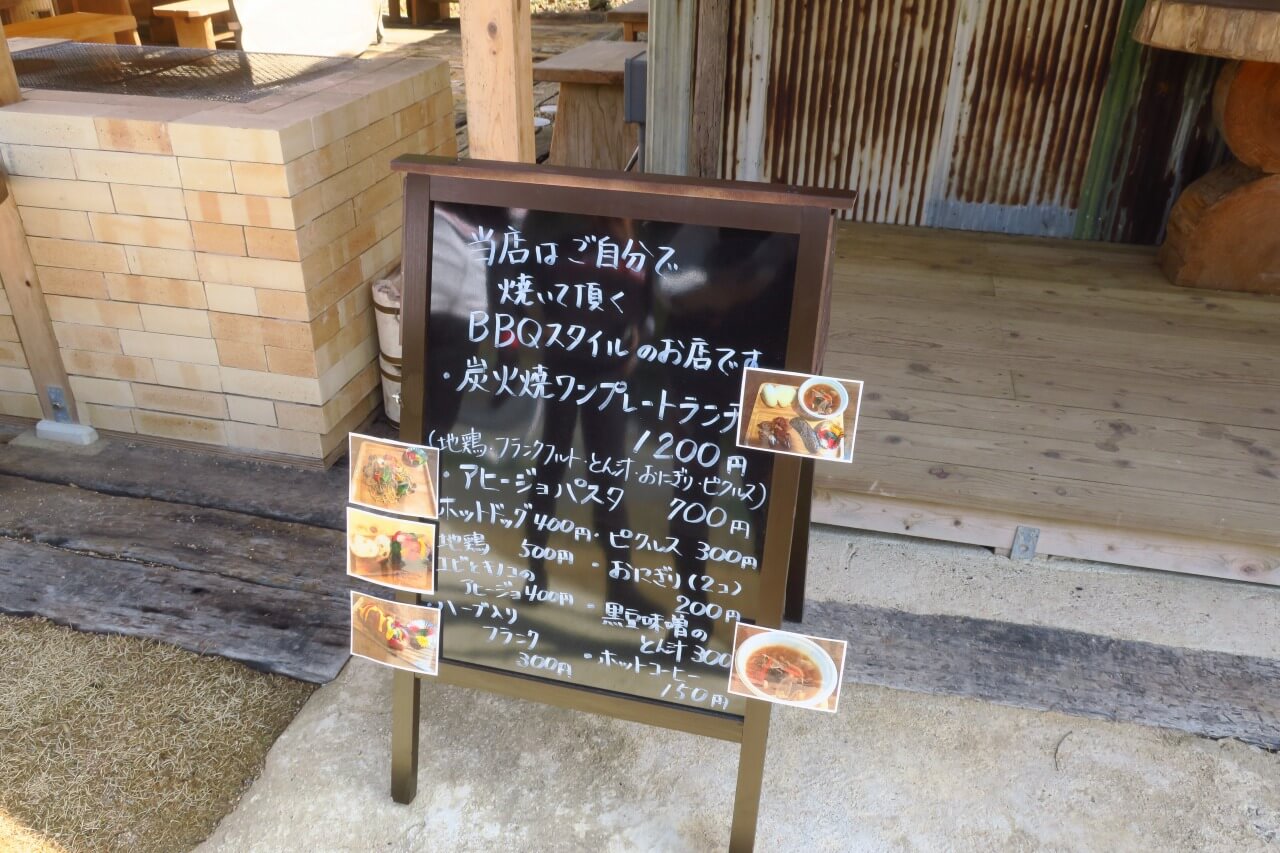 当店はご自分で
焼いて頂く
BBQスタイルのお店です
・炭火焼ワンプレートランチ
1200円
(地鶏・フランクフルト・とん汁・おにぎり・ピクルス)
・アヒージョパスタ 700円
ホットドッグ400円
地鶏 500円
エビとキノコの
アヒージョ400円
・ハーブ入り
フランク
300円
・ピクルス 300円
・おにぎり(2コ)
200円
・黒豆味噌の
とん汁 300
・ホットコーヒー
150円